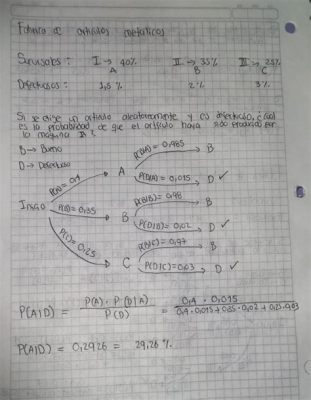 Fabrica de articulos metalicos
Sucursales: I → 40% II → 35% III → 25%
A B C
Defectuosos: 1,5% 2% 3%
Si se elige un articulo aleatoriamente y es defectuoso, ¿cual
es la probabilidad de que el articulo haya sido producido por
la maquina
B → Bueno
D → Defectuoso
P(B|A) = 0,985 B
P(A) = 0,4 A
P(D|A) = 0,015 D ✓
P(B|B) = 0,98 B
P(B) = 0,35 B
P(D|B) = 0,02 D ✓
P(B|C) = 0,97 B
P(C) = 0,25 C
P(D|C) = 0,03 D ✓
P(A|D) = P(A) · P(D|A) / P(D) = 0,4 · 0,015 / 0,4 · 0,015 + 0,35 · 0,02 + 0,25 · 0,03
P(A|D) = 0,2926 = 29,26 %.